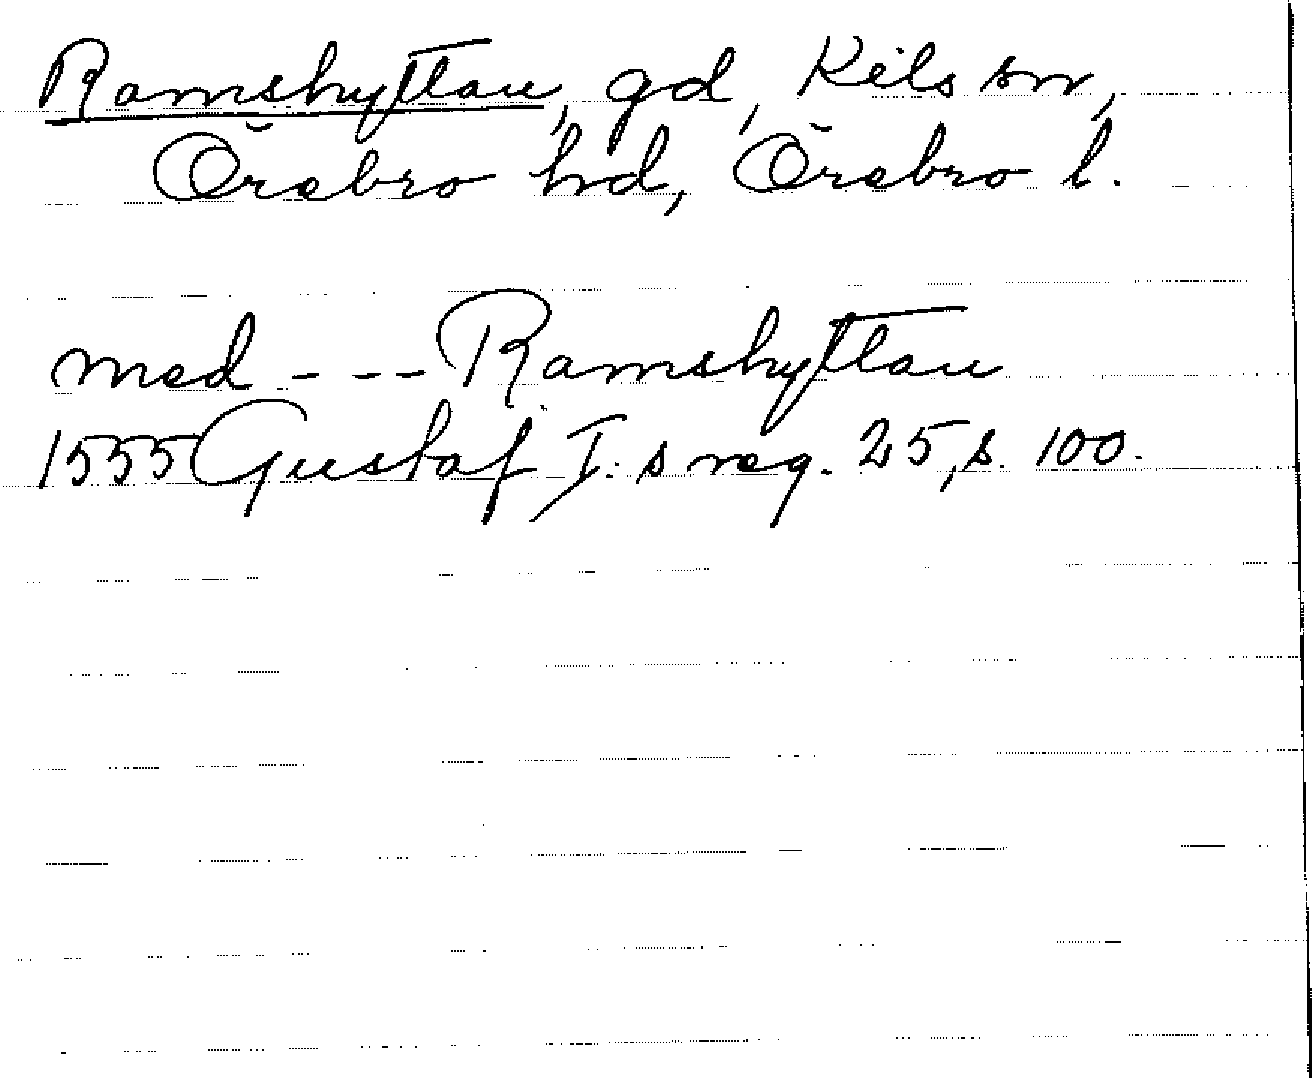 Ramshyttan, gd, Kils sn,
Örebro hd, Örebro l.
med - - - Ramshyttan
1555 Gustaf I:s reg. 25, s. 100.